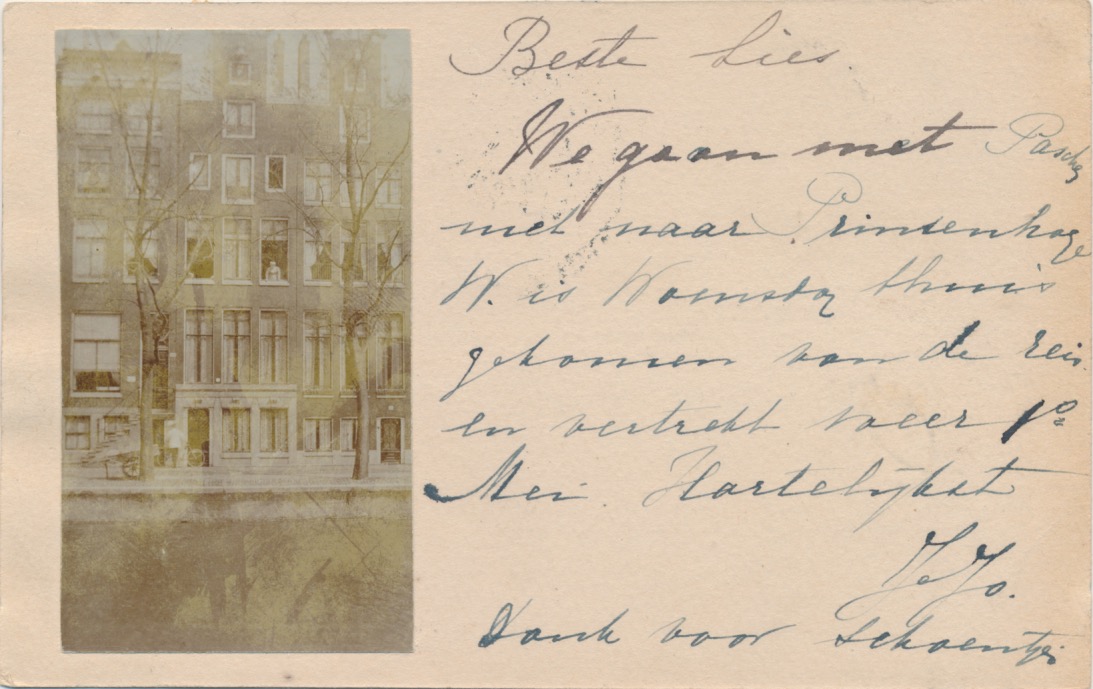 Beste Lies.
We gaan met Paschen
niet naar Prinsenhage
W. is Woensdag thuis
gekomen van de reis.
en vertrekt weer 1o
Mei. Hartelijkst
Je Jo.
Dank voor schoentjes